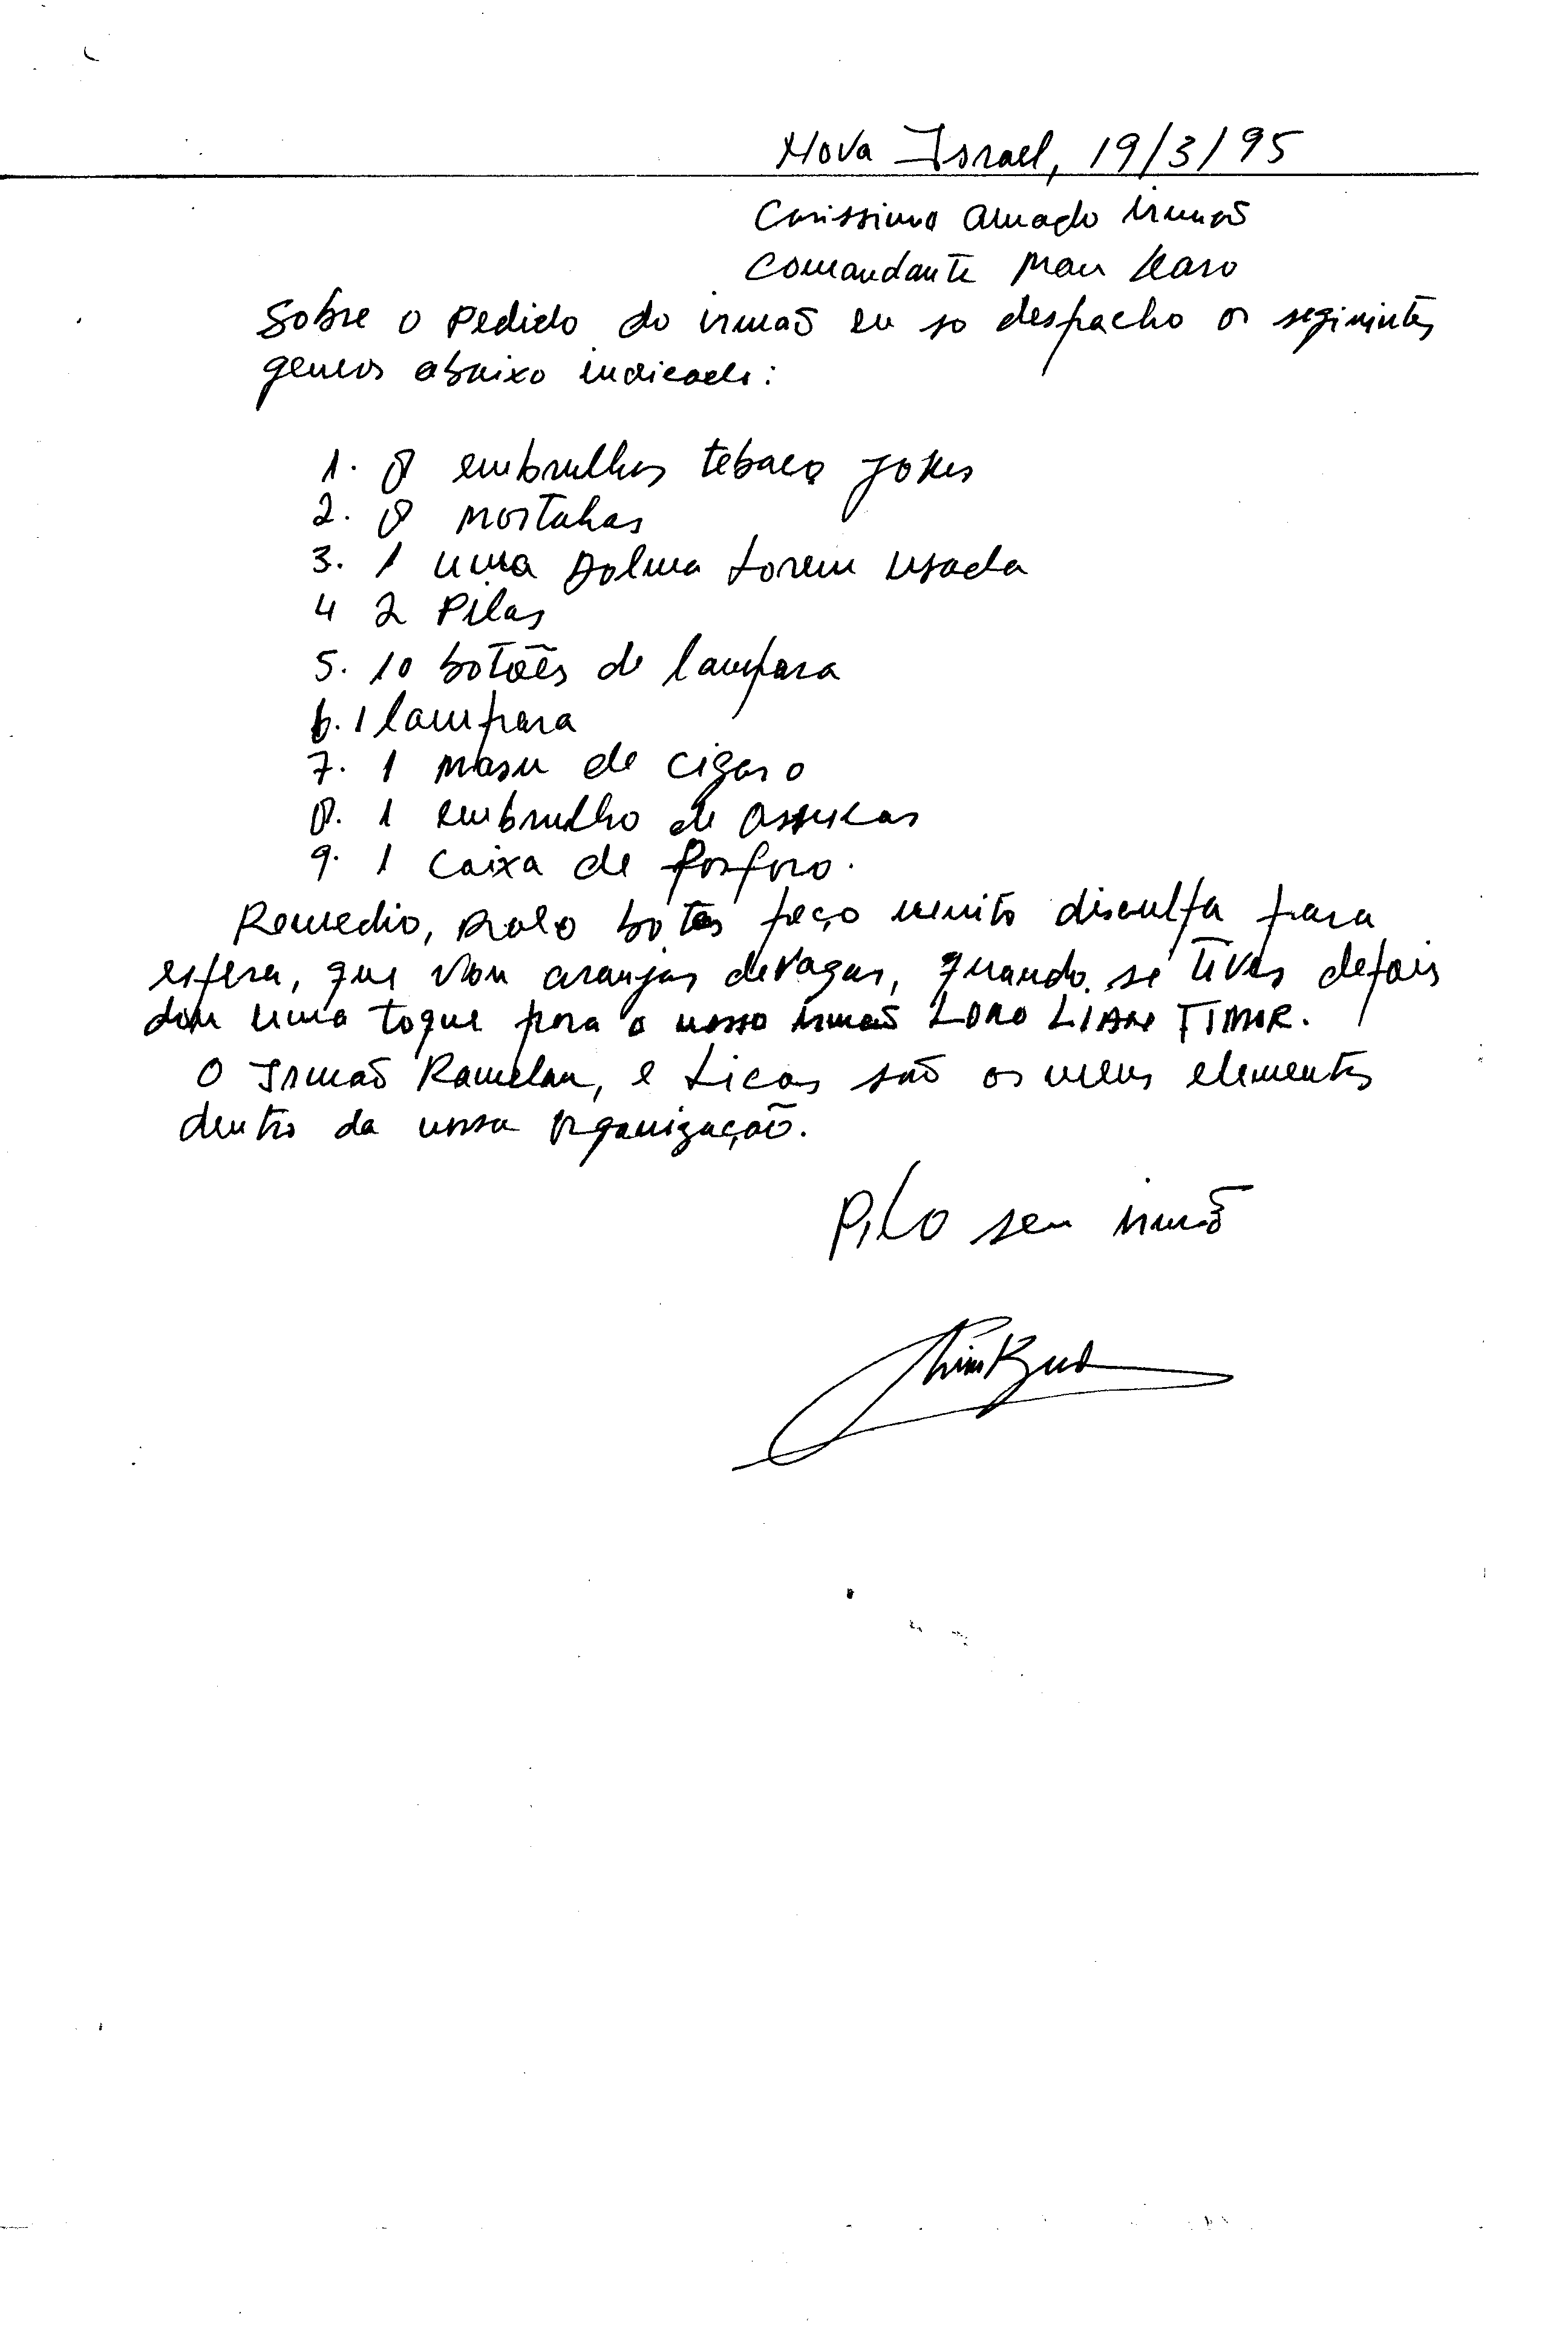 Nova Israel, 19/3/95
Carissimo amado irmão
Comandante Mau Karo
Sobre o pedido do irmão eu so despacho os segiuintes
generos abaixo indicado:
1. 8 embrulhos tebaco
2. 8 mortahas
3. 1 uma usada
4 2 Pilas
5. 10 botões de lampara
6. 1 lampara
7. 1 masu de cigaro
8. 1 embrulho de assucar
9. 1 caixa de fosforo.
Remedio, botas peço muito disculpa para
espera, que vou aranjar devagar, quando se tiver depois
dou uma toque para o nosso irmão LORO LIAN TIMOR.
O Irmão Ramelau, e Licas são os meus elementos
dentro da nossa organização.
Pilo seu irmão